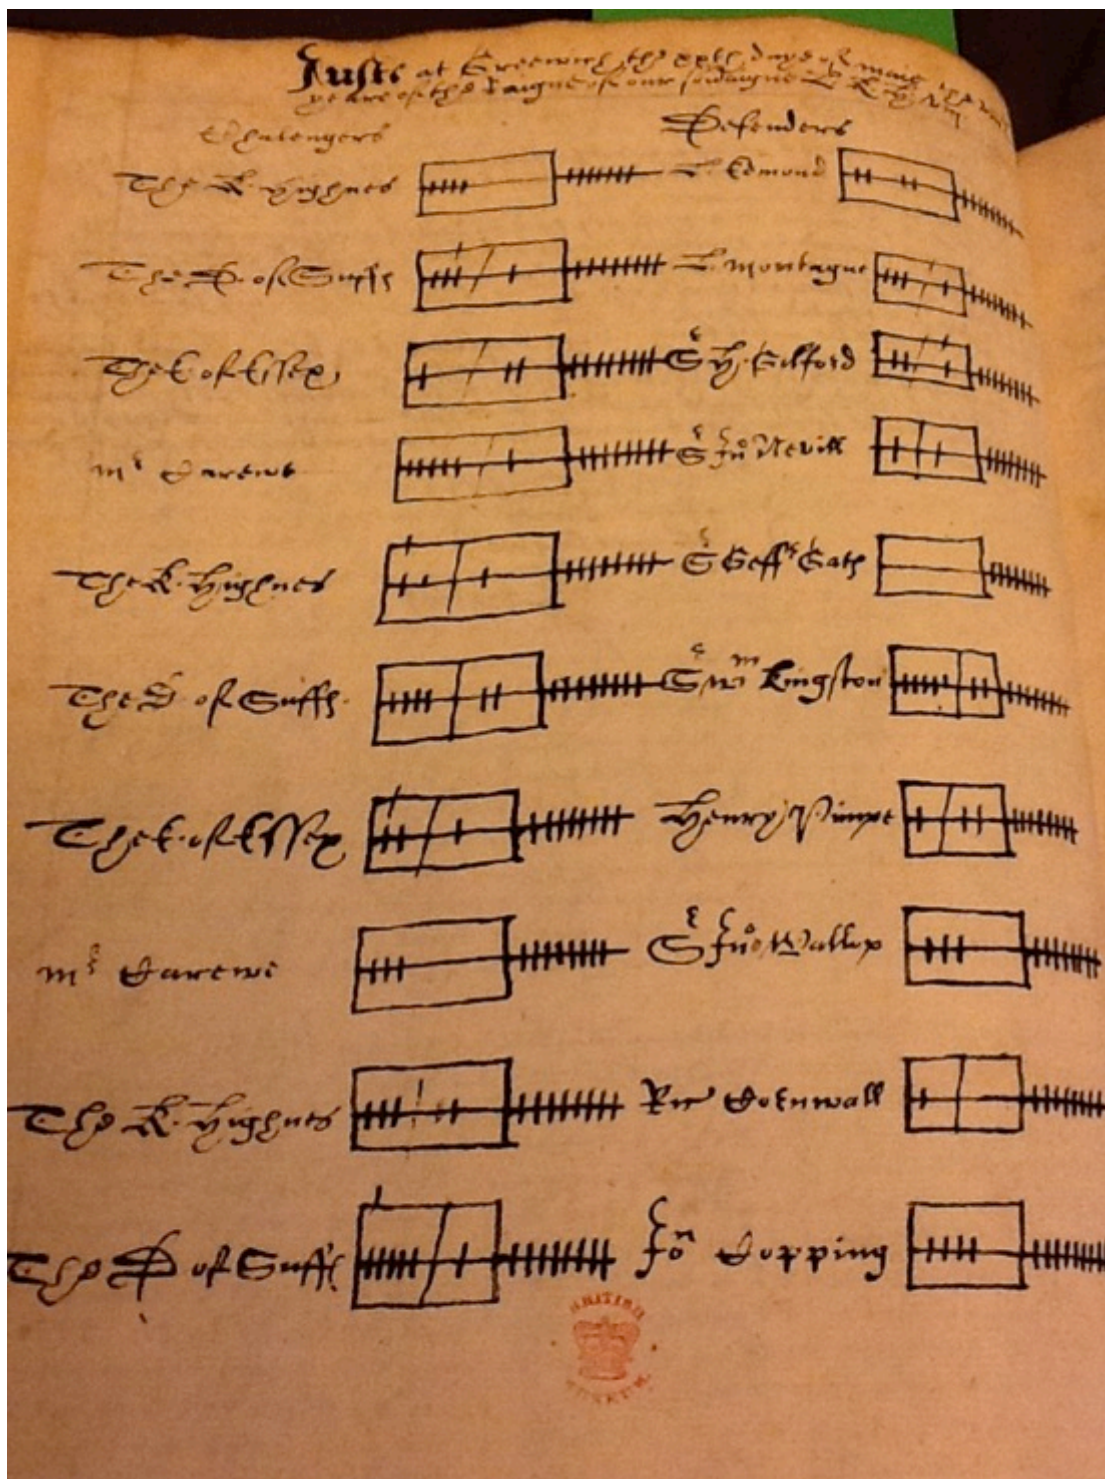 Justs at Greenwich the xxth daye of maie the
yeare of the Raigne of our
Chalengers Defenders
The K. Highnes L. Edmond
The D. of Suffk L. montague
The E. of Essex Sr H. Gilford
mr Carewe Sr Jno Nevill
The K. Highnes Sr Geffr Gats
The D. of Suffk. Sr Wm Kingston
The E. of Essex Henry Pimpe
mr Carewe Sr Jno Wallop
The K. Highnes Ric Cornwall
The D of Suffk Jon Copping
BRITISH
MUSEUM